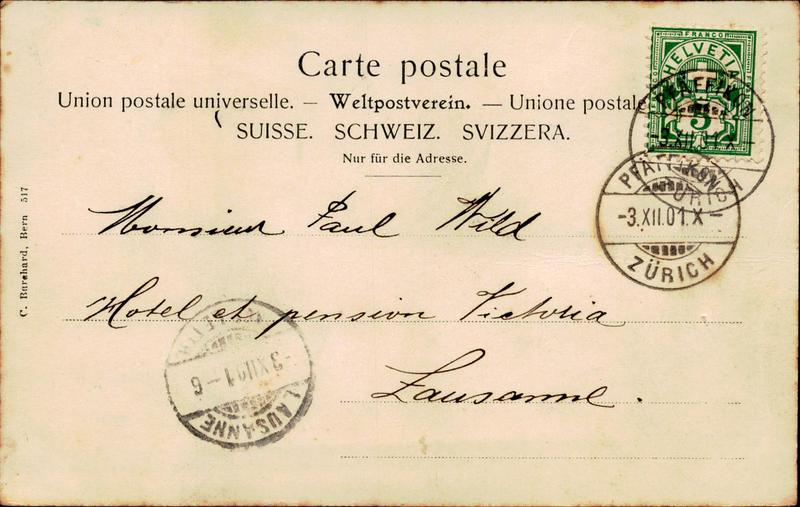 Carte postale
Union postale universelle. — Weltpostverein. — Unione postale
SUISSE. SCHWEIZ. SVIZZERA.
Nur für die Adresse.
FRANCO
HELVETIA
5
PFÄFFIKON
ZÜRICH
PFÄFFIKON
-3.XII.01.X-
ZÜRICH
Monsieur Paul Wild
Hotel et pension Victoria
Lausanne.
-3.XII.01-6
LAUSANNE
C. Burchard, Bern 517